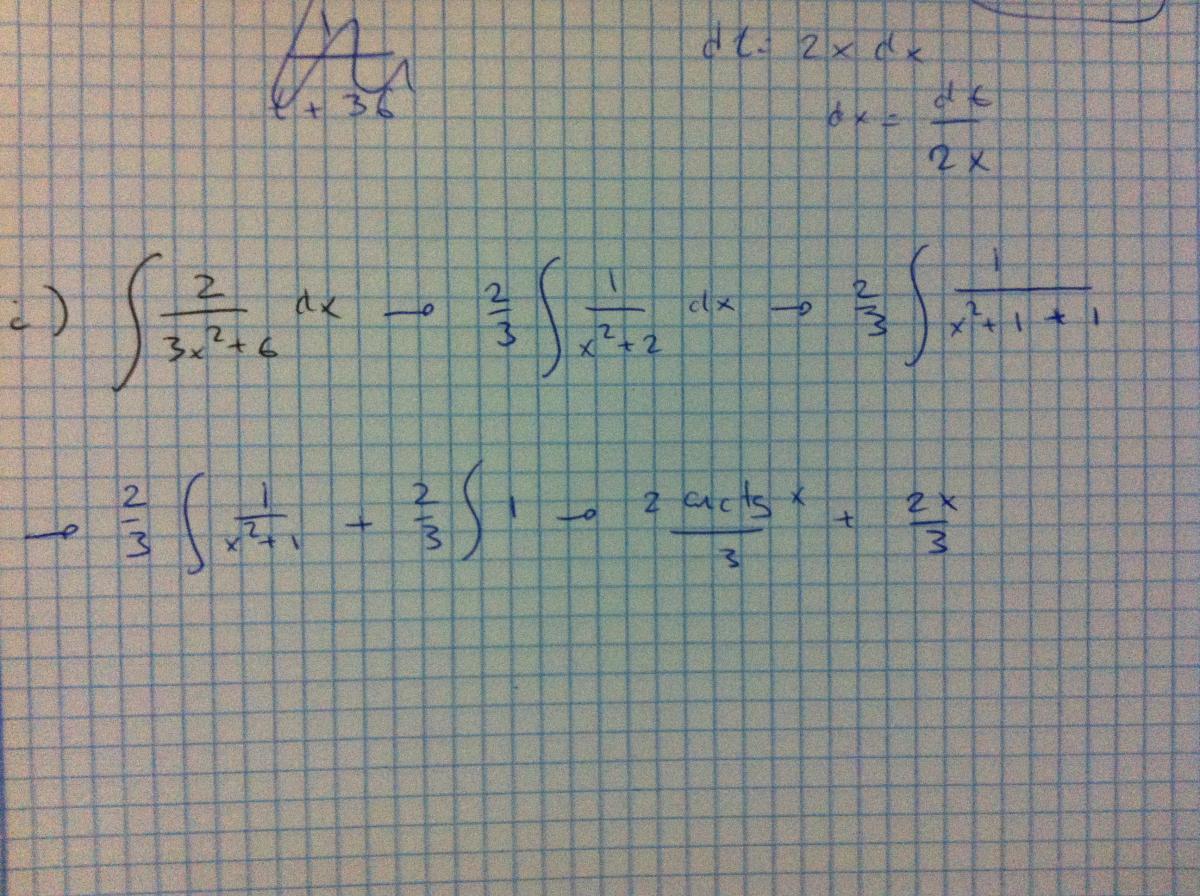 dt = 2x dx
t + 36
dx = dt / 2x
i) ∫ 2/(3x²+6) dx → 2/3 ∫ 1/(x²+2) dx → 2/3 ∫ 1/(x²+1+1)
→ 2/3 ∫ 1/(x²+1) + 2/3 ∫ 1 → 2 arctg x / 3 + 2x/3